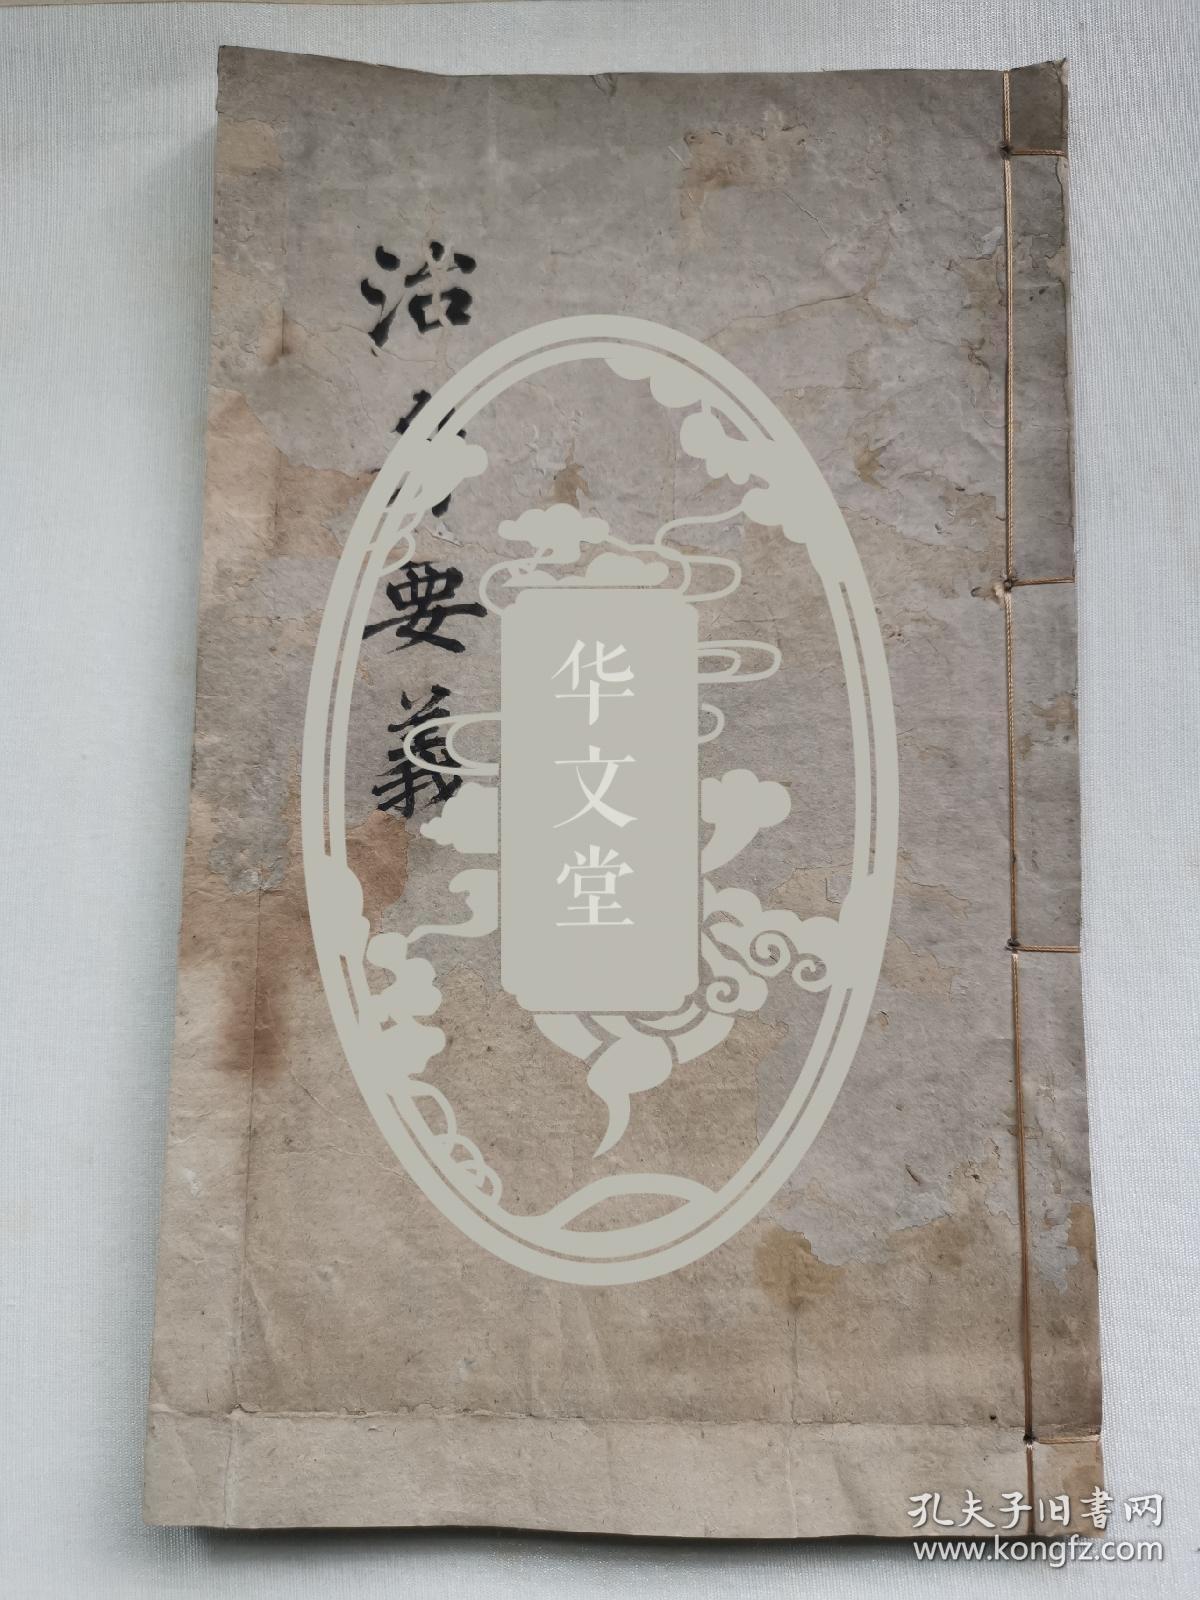 治
要
義
华
文
堂
孔夫子旧書网
www.kongfz.com